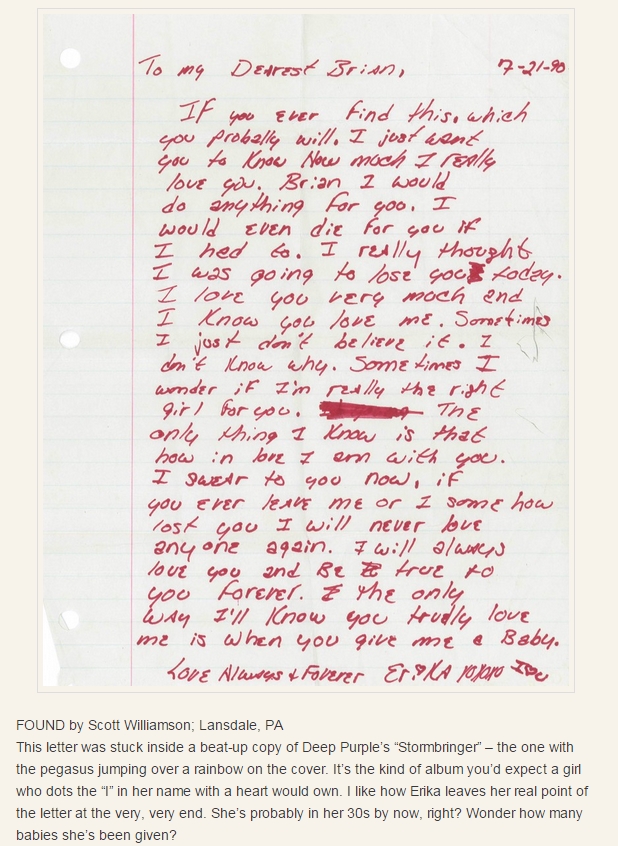 To my Dearest Brian, 7-21-90
If you ever find this, which
you probally will. I just want
you to know how much I really
love you. Brian I would
do anything for you. I
would even die for you if
I hed to. I really thought
I was going to lose you today.
I love you very much and
I know you love me. Sometimes
I just don't believe it. I
don't know why. Sometimes I
wonder if I'm really the right
girl for you. The
only thing I know is that
how in love I am with you.
I swear to you now, if
you ever leave me or I some how
lost you I will never love
any one again. I will always
love you and Be true to
you forever. the only
way I'll know you trudly love
me is when you give me a Baby.
Love Always & Forever Erika xoxoxo
FOUND by Scott Williamson; Lansdale, PA
This letter was stuck inside a beat-up copy of Deep Purple's “Stormbringer” – the one with
the pegasus jumping over a rainbow on the cover. It's the kind of album you'd expect a girl
who dots the “I” in her name with a heart would own. I like how Erika leaves her real point of
the letter at the very, very end. She's probably in her 30s by now, right? Wonder how many
babies she's been given?